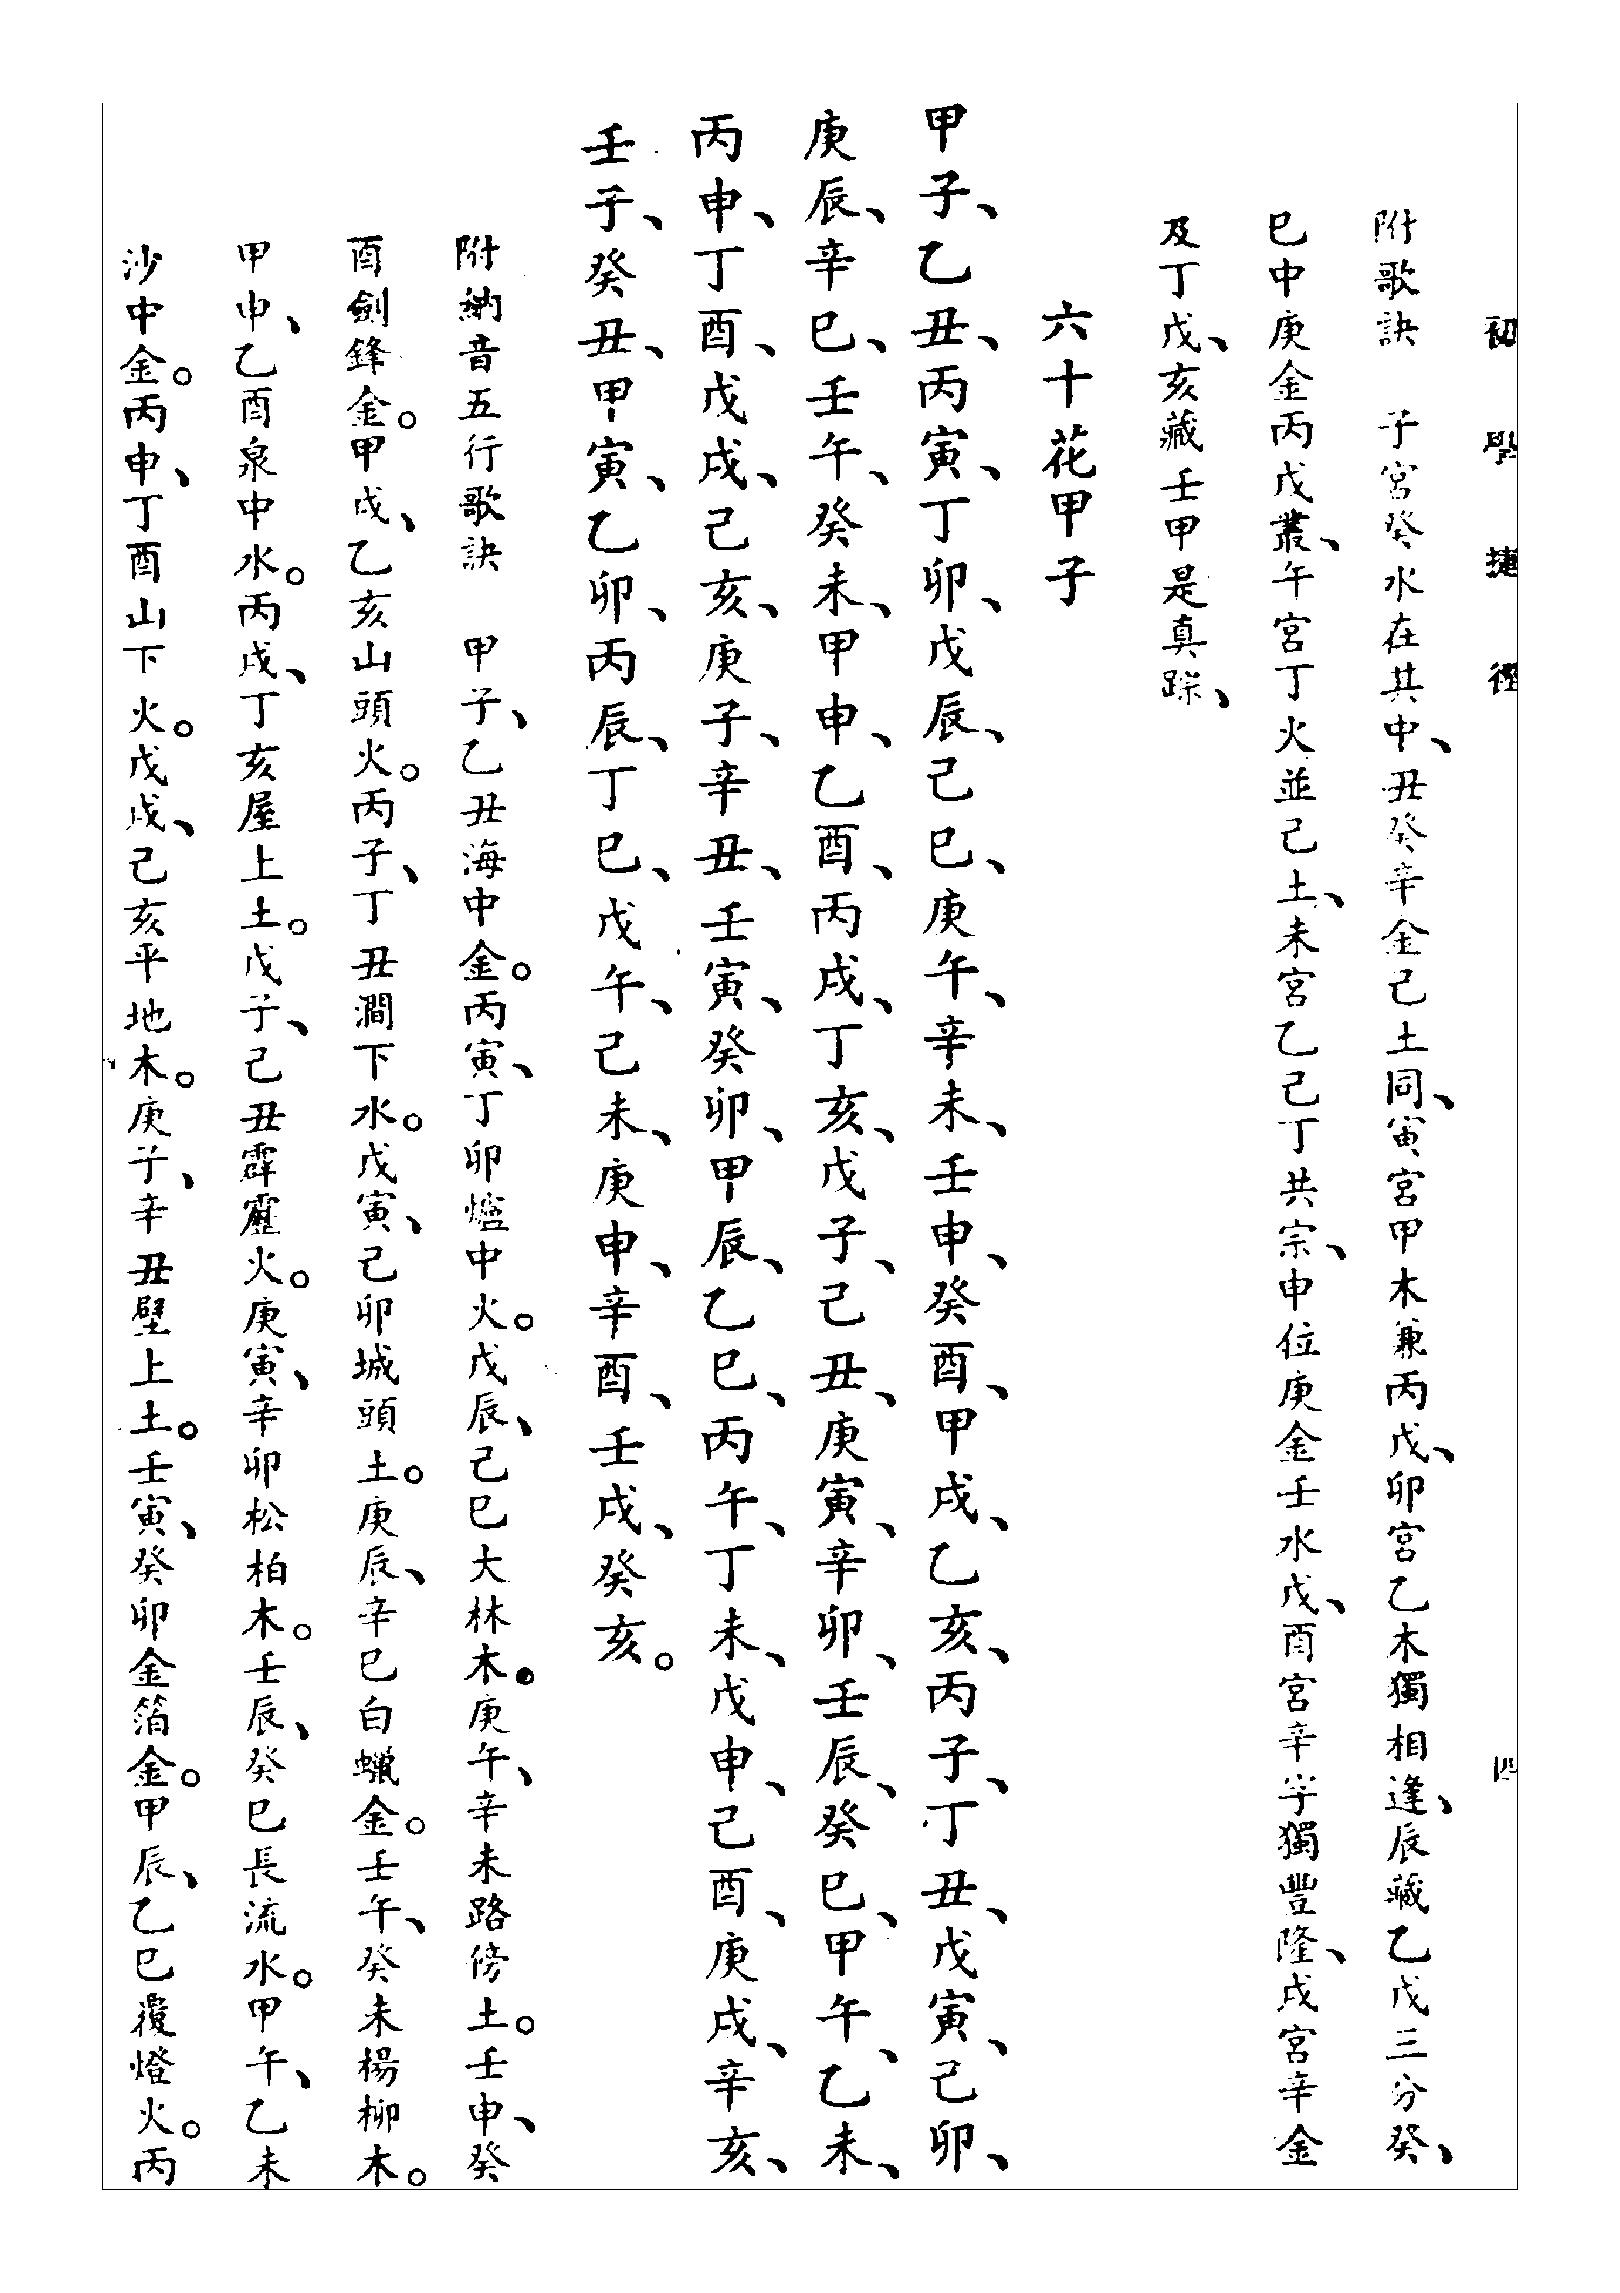 初學捷徑 四
附歌訣 子宮癸水在其中、丑癸辛金己土同、寅宮甲木兼丙戊、卯宮乙木獨相逢、辰藏乙戊三分癸、
巳中庚金丙戊叢、午宮丁火並己土、未宮乙己丁共宗、申位庚金壬水戊、酉宮辛字獨豐隆、戌宮辛金
及丁戊、亥藏壬甲是真踪、
六十花甲子
甲子、乙丑、丙寅、丁卯、戊辰、己巳、庚午、辛未、壬申、癸酉、甲戌、乙亥、丙子、丁丑、戊寅、己卯、
庚辰、辛巳、壬午、癸未、甲申、乙酉、丙戌、丁亥、戊子、己丑、庚寅、辛卯、壬辰、癸巳、甲午、乙未、
丙申、丁酉、戊戌、己亥、庚子、辛丑、壬寅、癸卯、甲辰、乙巳、丙午、丁未、戊申、己酉、庚戌、辛亥、
壬子、癸丑、甲寅、乙卯、丙辰、丁巳、戊午、己未、庚申、辛酉、壬戌、癸亥。
附納音五行歌訣 甲子、乙丑海中金。丙寅、丁卯爐中火。戊辰、己巳大林木。庚午、辛未路傍土。壬申、癸
酉劍鋒金。甲戌、乙亥山頭火。丙子、丁丑澗下水。戊寅、己卯城頭土。庚辰、辛巳白蠟金。壬午、癸未楊柳木。
甲申、乙酉泉中水。丙戌、丁亥屋上土。戊子、己丑霹靂火。庚寅、辛卯松柏木。壬辰、癸巳長流水。甲午、乙未
沙中金。丙申、丁酉山下火。戊戌、己亥平地木。庚子、辛丑壁上土。壬寅、癸卯金箔金。甲辰、乙巳覆燈火。丙